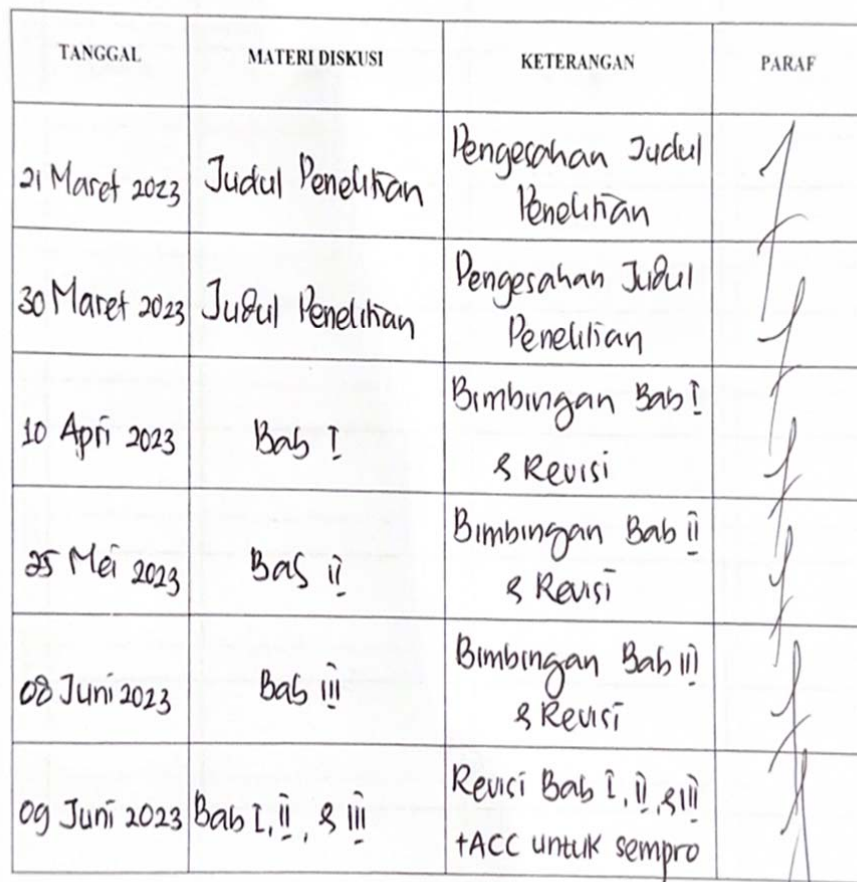 TANGGAL MATERI DISKUSI KETERANGAN PARAF
21 Maret 2023 Judul Penelitian Pengesahan Judul
Penelitian
30 Maret 2023 Judul Penelitian Pengesahan Judul
Penelitian
10 Apri 2023 Bab I Bimbingan Bab I
& Revisi
25 Mei 2023 Bab II Bimbingan Bab II
& Revisi
08 Juni 2023 Bab III Bimbingan Bab III
& Revisi
09 Juni 2023 Bab I, II, & III Revisi Bab I, II, & III
+ACC untuk sempro